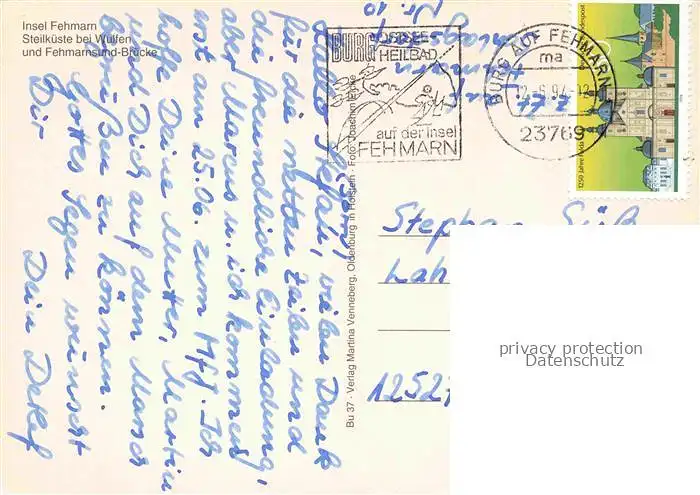 Insel Fehmarn
Steilküste bei Wulfen
und Fehmarnsund-Brücke
Stefan, vielen Dank
für die netten Zeilen und
die freundliche Einladung,
aber Marcus u. ich kommen
erst am 25.06. zum Hfj. Ich
hoffe Deine Mutter, Martin
und Dich auf dem Marsch
begrüßen zu können.
Gottes Segen wünscht
Dir Dein Detlef
Bu 37 · Verlag Martina Venneberg, Oldenburg in Holstein · Foto: Joachim
Nr. 10
BURG OSTSEE
HEILBAD
auf der Insel
FEHMARN
BURG AUF FEHMARN
ma
23769
1250 Jahre Fulda
Deutsche Bundespost
Stephan Süß
Lah
1252
privacy protection
Datenschutz